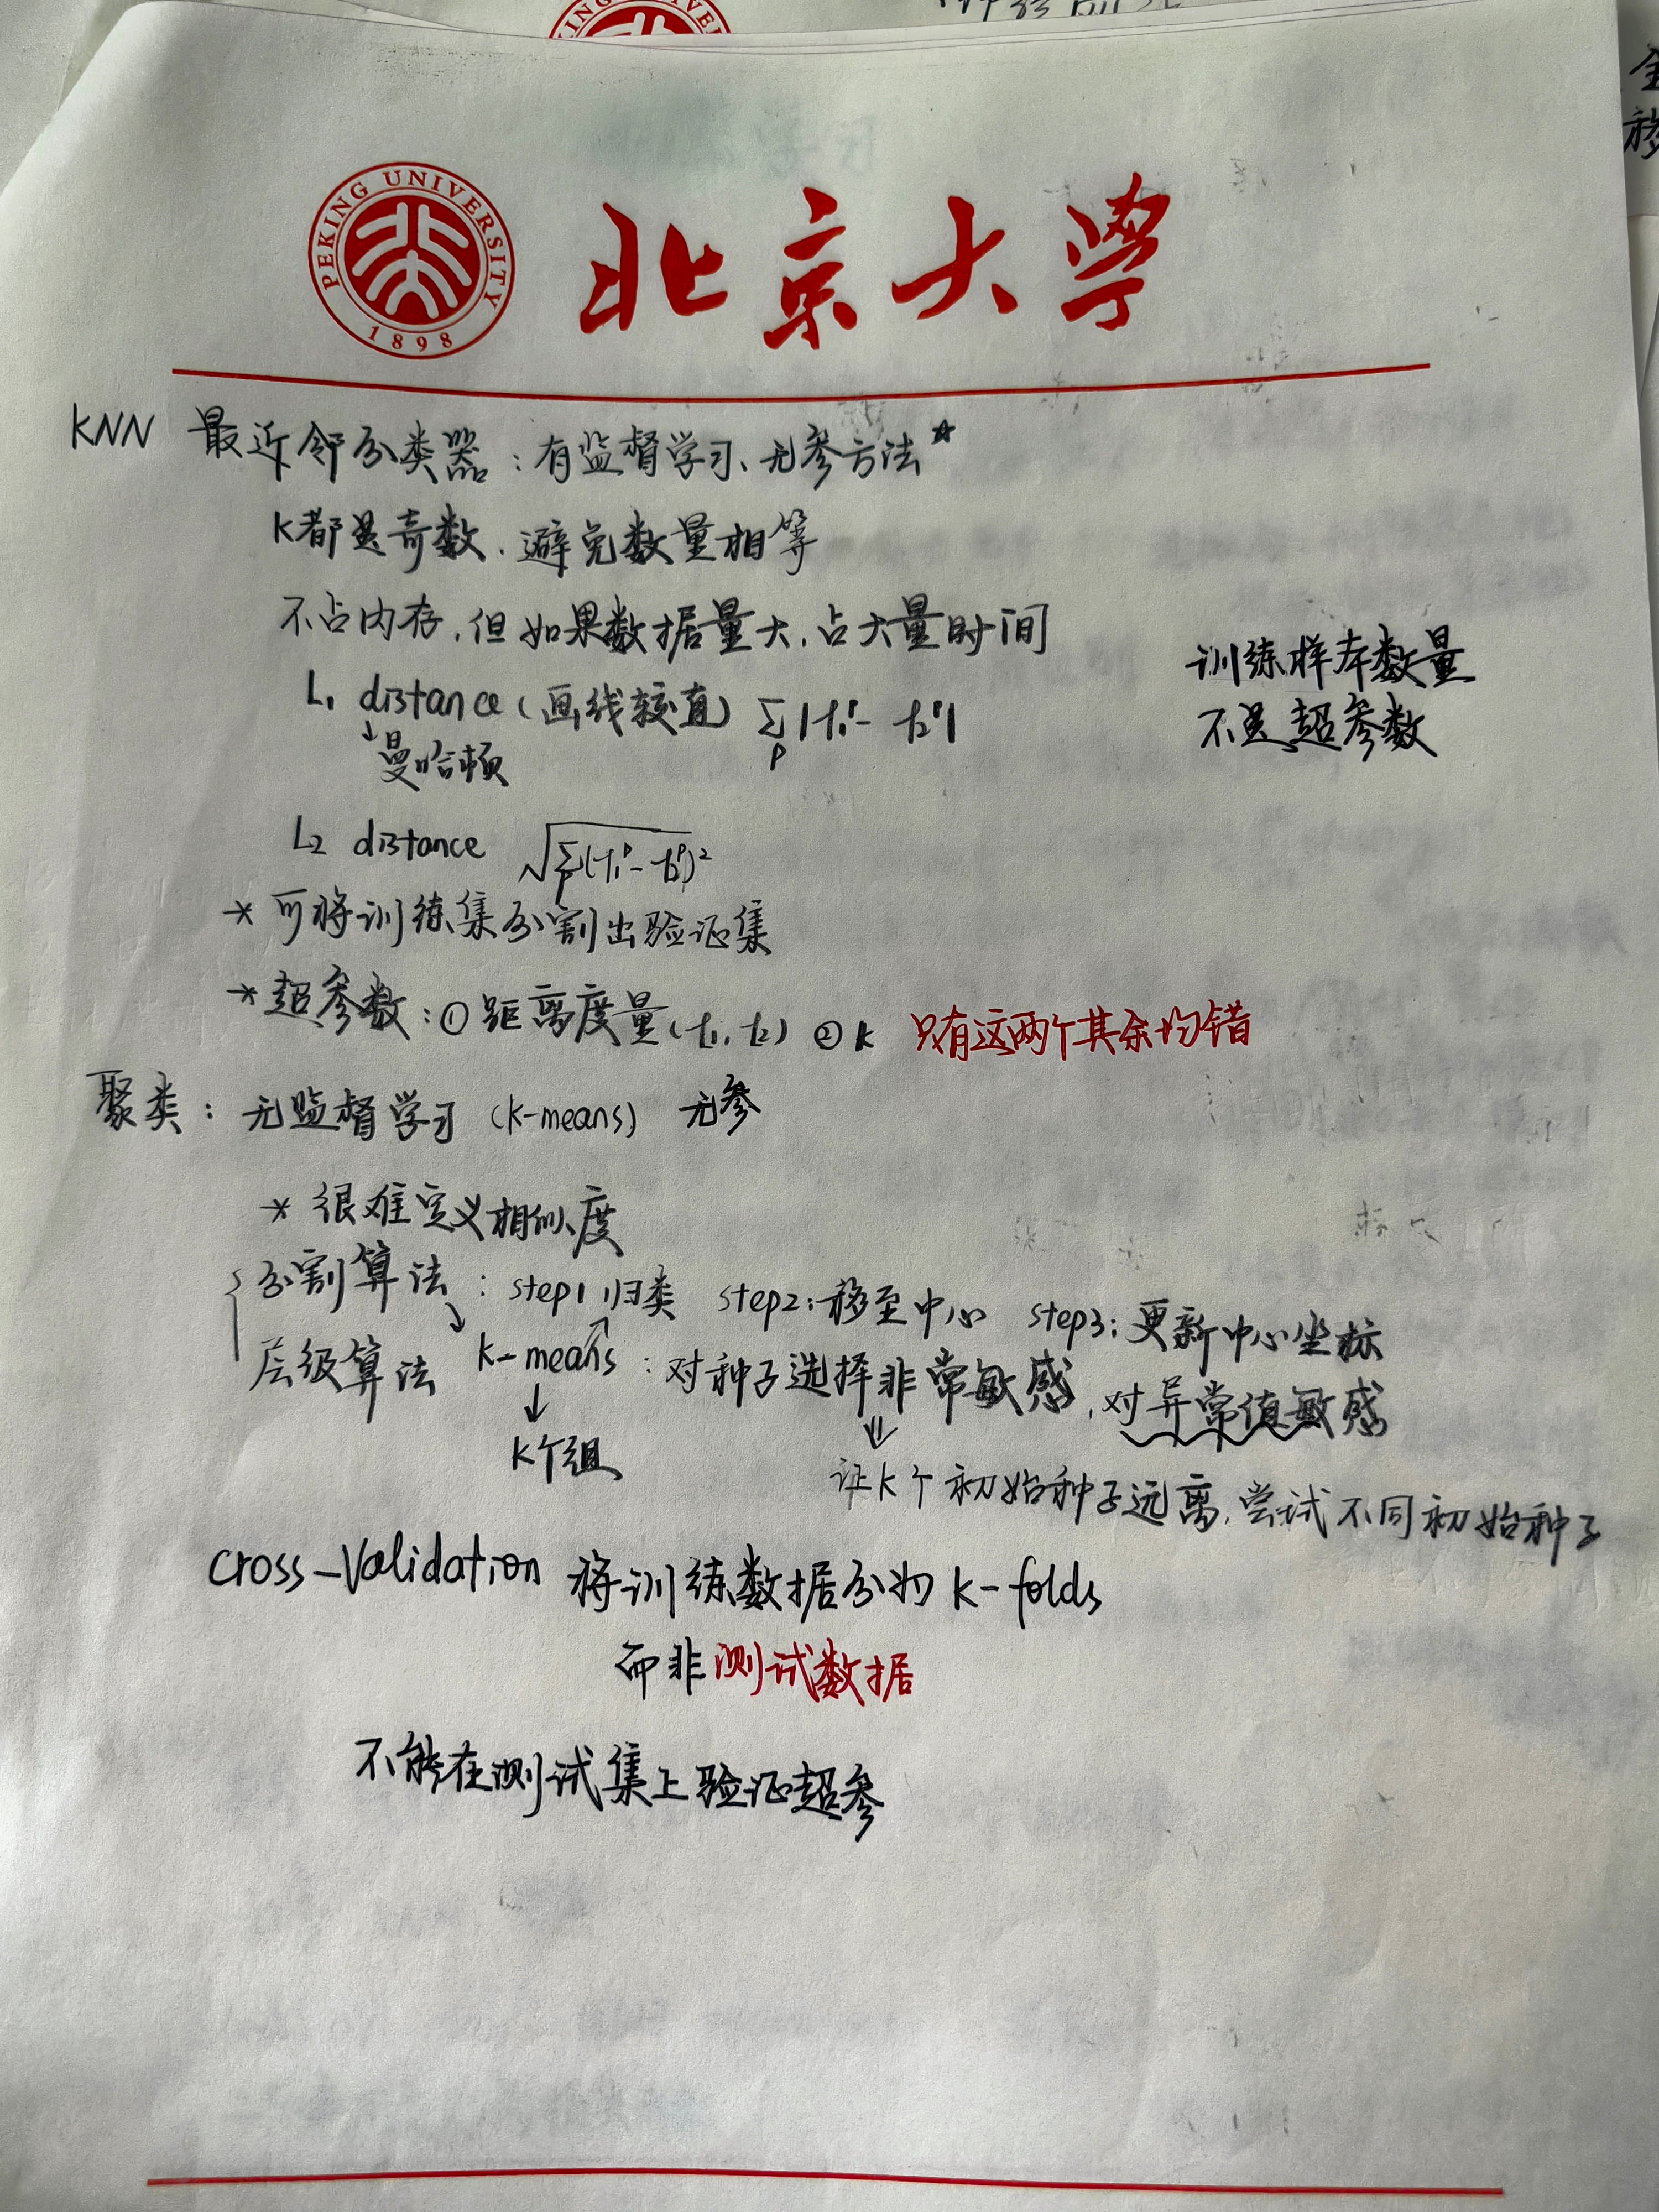 PEKING UNIVERSITY
1898
北京大学
KNN 最近邻分类器：有监督学习、无参方法☆
K都是奇数，避免数量相等
不占内存，但如果数据量大，占大量时间
训练样本数量
不是超参数
L₁ distance（画线较直） ∑ₚ|I₁ᵖ - I₂ᵖ|
↓曼哈顿
L₂ distance √∑ₚ(I₁ᵖ - I₂ᵖ)²
* 可将训练集分割出验证集
* 超参数：① 距离度量（L₁，L₂） ② K 只有这两个其余均错
聚类：无监督学习（K-means） 无参
* 很难定义相似度
分割算法：step1 归类 step2：移至中心 step3：更新中心坐标
层级算法 K-means：对种子选择非常敏感，对异常值敏感
↓ K个组
⇓ 让K个初始种子远离，尝试不同初始种子
Cross-Validation 将训练数据分为 K-folds
而非测试数据
不能在测试集上验证超参